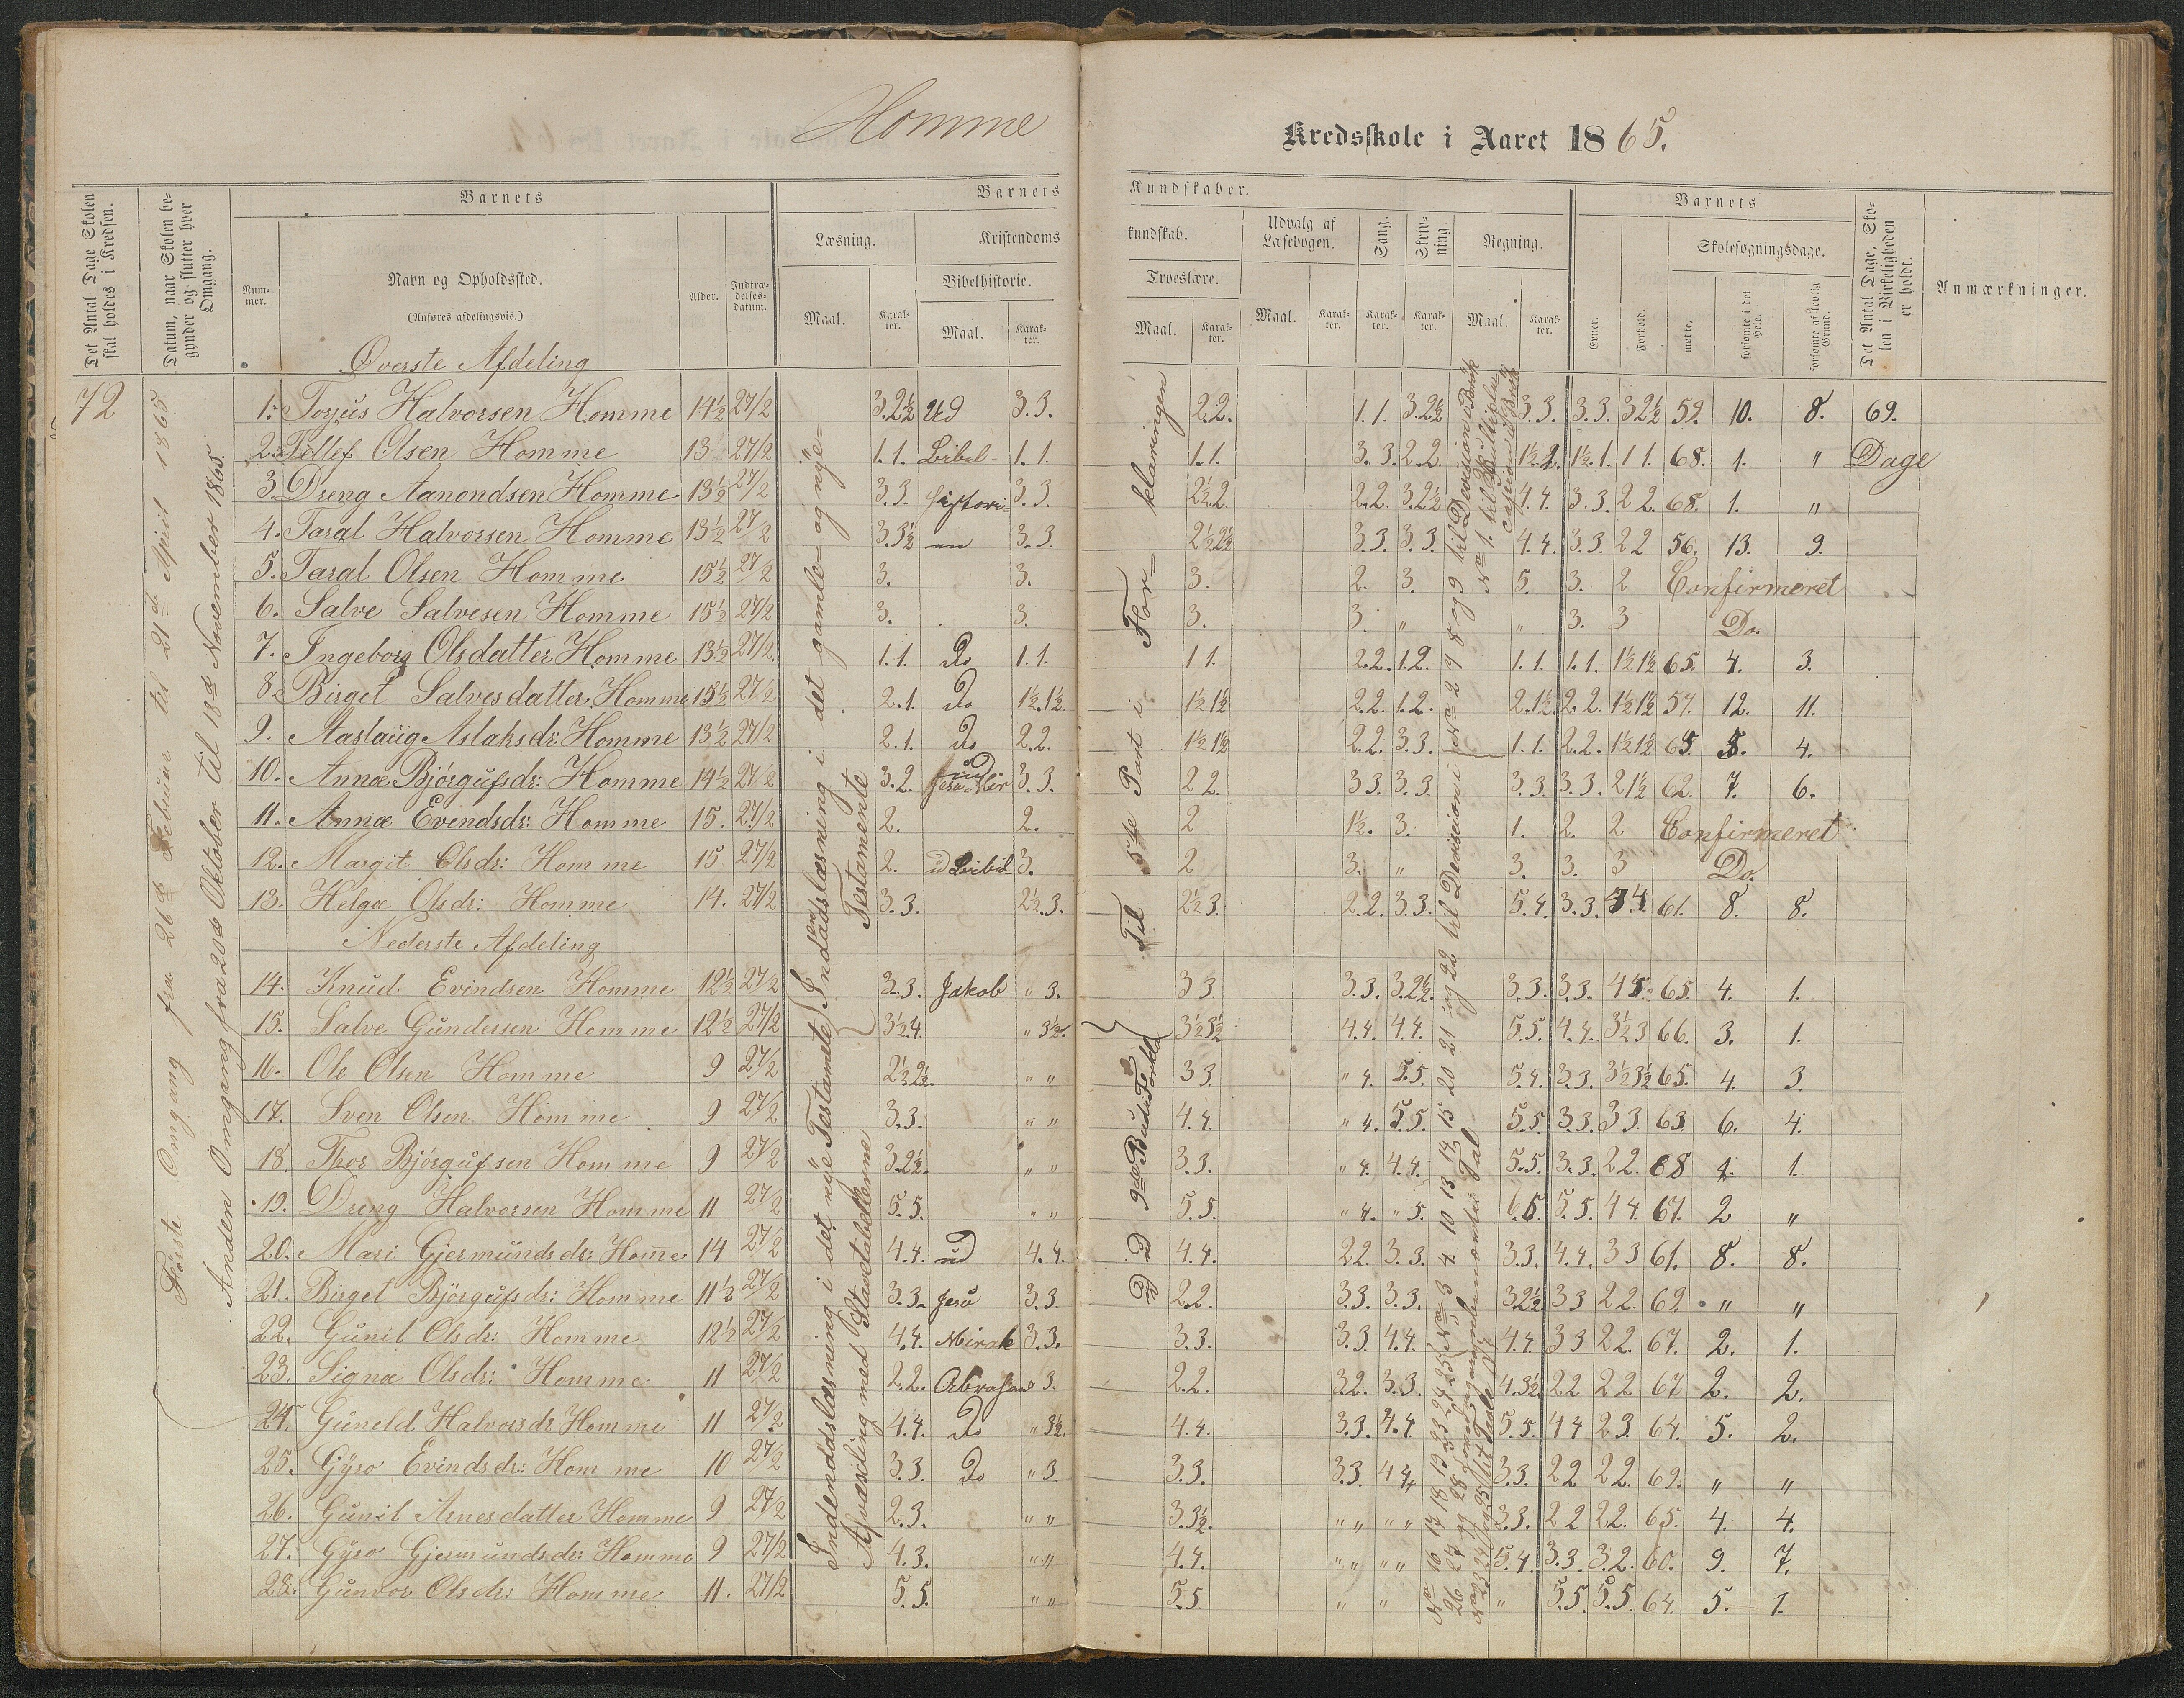 Homme
Kredsskole i Aaret 1865.
Det Antal Dage Skolen skal holdes i Kredsen.
Datum, naar Skolen begynder og slutter hver Omgang.
Barnets
Nummer.
Navn og Opholdssted.
(Anføres afdelingsvis.)
Alder.
Indtrædelsesdatum.
Barnets
Kundskaber.
Læsning.
Kristendoms
kundskab.
Udvalg af Læsebogen.
Sang.
Skrivning
Regning.
Bibelhistorie.
Troeslære.
Maal. Karakter. Maal. Karakter. Maal. Karakter. Maal. Karakter. Karakter. Karakter. Maal. Karakter.
Barnets
Evner. Forhold.
Skolesøgningsdage.
mødte. forsømte i det Hele. forsømte af lovlig Grund.
Det Antal Dage, Skolen i Virkeligheden er holdt.
Anmærkninger.
72
Første Omgang fra 26de Februar til 21de April 1865
Anden Omgang fra 20de Oktober til 18de November 1865.
Øverste Afdeling
1. Torjus Halvorsen Homme 14½ 27/2 3.2½ Ud 3.3. 2.2. 1.1. 3.2½ 3.3. 3.3. 3 2½ 59. 10. 8. 69.
2. Tellef Olsen Homme 13 27/2 1.1. Bibel- 1.1. 1.1. 3.3. 2.2. 1½.1. 1 1. 68. 1. " Dage
3. Dreng Aanondsen Homme 13½ 27/2 3.3. histori- 3.3. 2½2. 2.2. 3.2½ 4.4. 3.3. 2 2. 68. 1. "
4. Taral Halvorsen Homme 13½ 27/2 3.3½ en 3.3. 2½2½ 3.3. 3.3. 4.4. 3.3. 2 2 56. 13. 9.
5. Taral Olsen Homme 15½ 27/2 3. 3. 3. 2. 3. 5. 3. 2 Confirmeret
6. Salve Salvesen Homme 15½ 27/2 3. 3. 3. 3. " " 3. 3 Do.
7. Ingeborg Olsdatter Homme 13½ 27/2 1.1. Do 1.1. 1 1. 2.2. 1.2. 1.1. 1.1. 1½1½ 65. 4. 3.
8. Birget Salvesdatter Homme 15½ 27/2 2.1. Do 1½.1½. 1½1½ 2.2. 1.2. 2.1½. 2.2. 1½1½ 57. 12. 11.
9. Aaslaug Aslaksdr: Homme 13½ 27/2 2.1. Do 2.2. 1½1½ 2.2. 3.3. 1.1. 2.2. 1½1½ 65 5. 4.
10. Anna Bjørgufsdr: Homme 14½ 27/2 3.2. 3.3. 2 2. 3 3. 3.3. 3.3. 3.3. 2 1½ 62. 7. 6.
11. Anna Evindsdr: Homme 15. 27/2 2. 2. 2 1½. 3. 1. 2. 2 Confirmeret
12. Margit Olsdr: Homme 15 27/2 2. 3. 2 3. " 3. 3. 3 Do.
13. Helga Olsdr: Homme 14. 27/2 3.3. 2½.3. 2½3. 2.2. 3.3. 5.4. 3.3. 61. 8. 8.
Nederste Afdeling
14. Knud Evindsen Homme 12½ 27/2 3.3. Jakob " 3. 3 3. 3.3. 3.2½. 3.3. 3.3. 65. 4. 1.
15. Salve Gundersen Homme 12½ 27/2 3½4. " 3½. 3½3½ 4.4. 4.4. 5.5. 4.4. 3½3 66. 3. 1.
16. Ole Olsen Homme 9 27/2 2½2½. " " 3 3. " 4. 5.5. 5.4. 3.3. 3½3½ 65. 4. 3.
17. Sven Olsen Homme 9 27/2 3.3. " " 4.4. " 4. 5.5. 5.5. 3.3. 3 3. 63. 6. 4.
18. Thor Bjørgufsen Homme 9 27/2 3.2½. " " 3.3. " 4. 4.4. 5.5. 3.3. 2 2. 68 1. 1.
19. Dreng Halvorsen Homme 11 27/2 5.5. " " 5.5. " 4. " 5. 5.5. 4 4. 67. 2 "
20. Mari Gjermundsdr: Home 14 27/2 4.4. ud 4.4. 4.4. 2.2. 3.3. 3.3. 4.4. 3 3 61. 8. 8.
21. Birget Bjørgufsdr: Homme 11½ 27/2 3.3. Jesu 3.3. 2.2. 3.3. 3.3. 32½ 3 3 2 2. 69. " "
22. Gunil Olsdr: Homme 12½ 27/2 4.4. Mirak 3.3. 3.3. 3.3. 4.4. 4.4. 3 3 2 2. 67. 2. 1.
23. Signa Olsdr: Homme 11 27/2 2.2. 3. 2.2. 32. 3.3. 4.3½ 2 2 2 2 67 2. 2.
24. Guneld Halvorsdr Homme 11 27/2 4.4. Do " 3½. 4.4. 3.3. 4.4. 5.5. 4 4 2 3. 64. 5. 2.
25. Gyro Evindsdr: Homme 10 27/2 3.3. Do " 3. 3.3. 3.3 4 4 3.3. 2 2 2 2. 69. " "
26. Gunil Arnesdatter Homme 9 27/2 2.3. " " 3.3½. " " " " 3.3. 2 2 2 2. 65. 4. 4.
27. Gyro Gjermundsdr: Homme 9 27/2 4.3. " " 4.4. " " " " 5.4. 3.3. 3.2. 60. 9. 7.
28. Gunvor Olsdr: Homme 11. 27/2 5.5. " " 5.5. " " " 5.5. 5.5. 64. 5. 1.
Indenadslæsning i det gamle- og nye= Testamente
Indenadslæsning i det nye Testamete
Afvexling med Stavetabellerne
Til 5te Part i For= klaringen